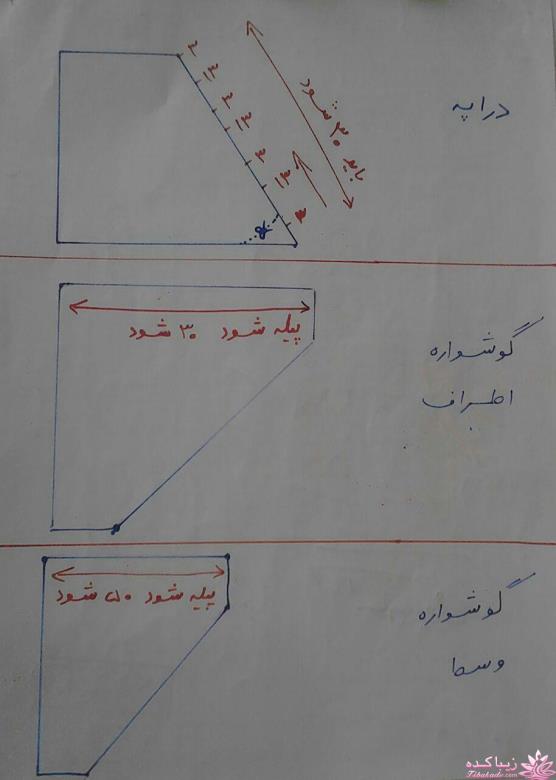 دراپه
باید ۳۰ شود
۳
۱۳
۳
۱۳
۳
۱۳
۳
گوشواره
اطراف
پیله شود ۳۰ شود
گوشواره
وسط
پیله شود ۵۰ شود
زیباکده
Zibakade.com